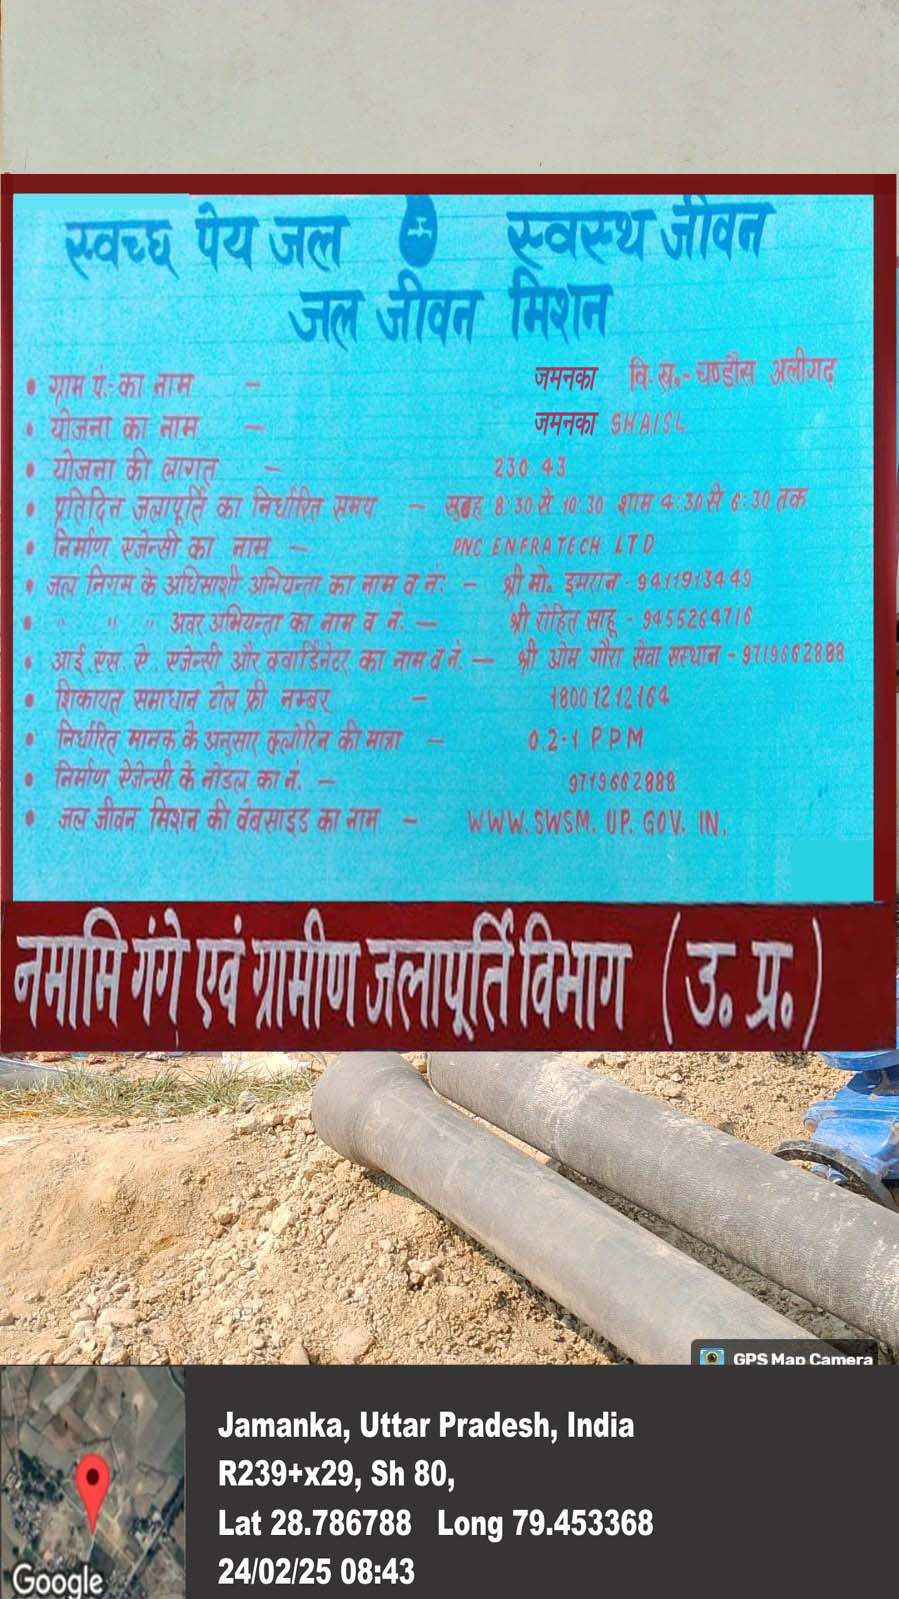 स्वच्छ पेय जल स्वस्थ जीवन
जल जीवन मिशन
• ग्राम पं० का नाम - जमनका वि. ख.- चण्डौस अलीगढ़
• योजना का नाम - जमनका SHAISL
• योजना की लागत - 230.43
• प्रतिदिन जलापूर्ति का निर्धारित समय - सुबह 8:30 से 10:30 शाम 4:30 से 6:30 तक
• निर्माण एजेन्सी का नाम - PNC ENFRATECH LTD
• जल निगम के अधिसाशी अभियन्ता का नाम व नं: - श्री मो. इमरान - 9411913449
• " " " अवर अभियन्ता का नाम व नं. - श्री रोहित साहू - 9455264716
• आई. एस. ऐ. एजेन्सी और क्वार्डिनेटर का नाम व नं. - श्री ओम गौरा सेवा सस्थान - 9719662888
• शिकायत समाधान टोल फ्री नम्बर - 18001212164
• निर्धारित मानक के अनुसार क्लोरिन की मात्रा - 0.2-1 PPM
• निर्माण ऐजेन्सी के नोडल का नं. - 9719662888
• जल जीवन मिशन की वेबसाइड का नाम - WWW.SWSM.UP.GOV.IN.
नमामि गंगे एवं ग्रामीण जलापूर्ति विभाग (उ. प्र.)
GPS Map Camera
Jamanka, Uttar Pradesh, India
R239+x29, Sh 80,
Lat 28.786788 Long 79.453368
24/02/25 08:43
Google